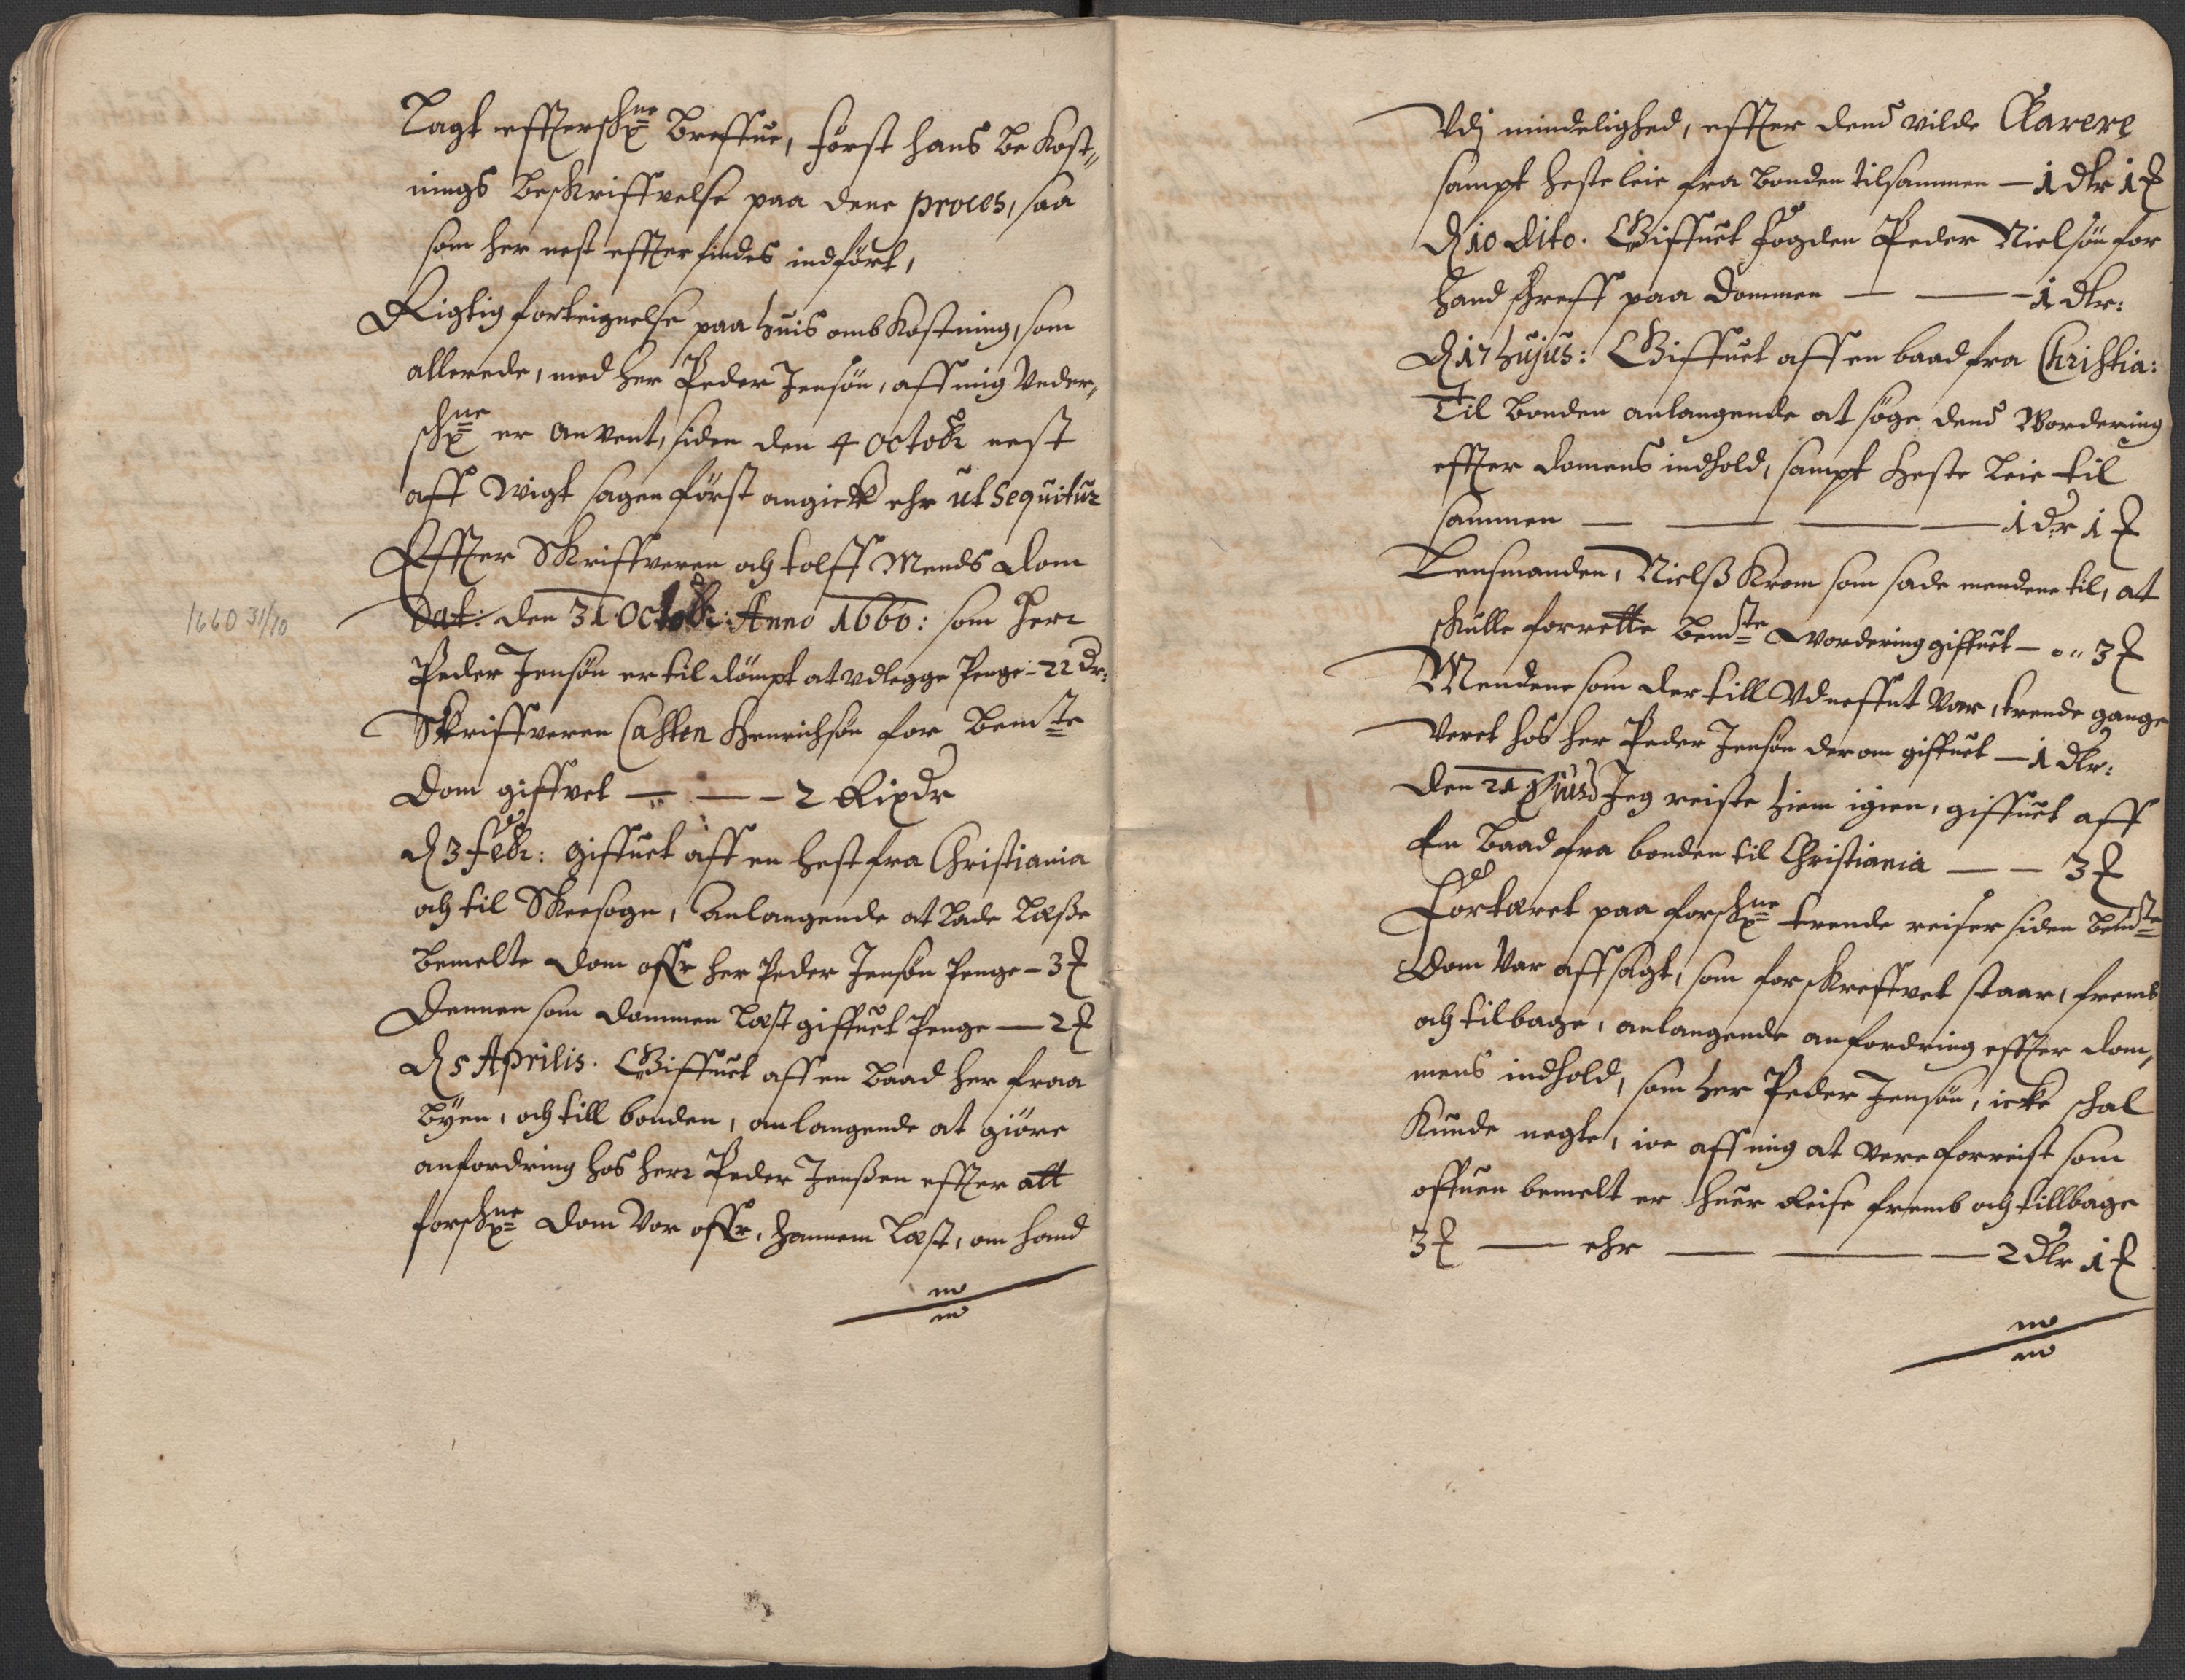 Lagt effterschne Breffue, først hans be Kost„
nings beskriffvelse paa dene proces, saa
som her nest effter findes indført,
Rigtig forteignelse paa huis ombkostning, som
allerede, med her Peder Jensøn, aff mig Under„
schne er anvent, siden den 4 octobr nest
aff Wigt sagen først angick ehr ut sequitur
Effter Skriffveren och tolff Mends dom
Dat: den 31 Octobr: Anno 1660: som herr
1660 31/10
Peder Jensøn er til dømpt at udlegge Penge - 22 dr:
Skriffveren Casten Henrichsøn for bemte
Dom giffvet — — - 2 Rixdr
D 3 febr: giffuet aff en hest fra Christiania
och til Skeesogn, Anlangende at lade læße
bemelte dom offr her Peder Jensøn Penge - 3 ℔
Dennen som dommen læst giffuet Penge — 2 ℔
D 5 Aprilis. Giffuet aff en baad her fraa
byen, och till bonden, anlangende at giöre
anfordring hos herr Peder Jenßen effter att
forschne dom Vor offr, hannem læst, om hand
Udj mindelighed, effter dend vilde Clarere
sampt hesteleie fra bonden tilsammen — 1 dlr 1 ℔
D 10 dito. Giffuet fogden Peder Nielsøn for
hand schreff paa Dommen — — 1 dlr:
D 17 hujus: Giffuet aff en baad fra Christia:
Til bonden anlangende at søge dend Wordering
effter domens indhold, sampt heste leie til
sammen — — — — 1 dr 1 ℔
Lensmanden, Nielß Krom som sade mendene til, at
schulle forrette bemte Wordering giffuet — „ 3 ℔
Mendene som der till Udneffnt var, trende gange
veret hos her Peder Jensøn derom giffuet — 1 dlr:
Den 21 Jeg reiste hiem igien, giffuet aff
En baad fra bonden til Christiania — — 3 ℔
Fortæret paa forschne trende reiser siden bemte
Dom Var affsagt, som forskreffvet staar, fremb
och tilbage, anlangende anfordring effter dom„
mens indhold, som her Peder Jensøn, icke schal
Kunde negte, ioe aff mig at vere forreist som
offuen bemelt er huer Reise fremb och tillbage
3 ℔ — ehr — — — 2 dlr 1 ℔